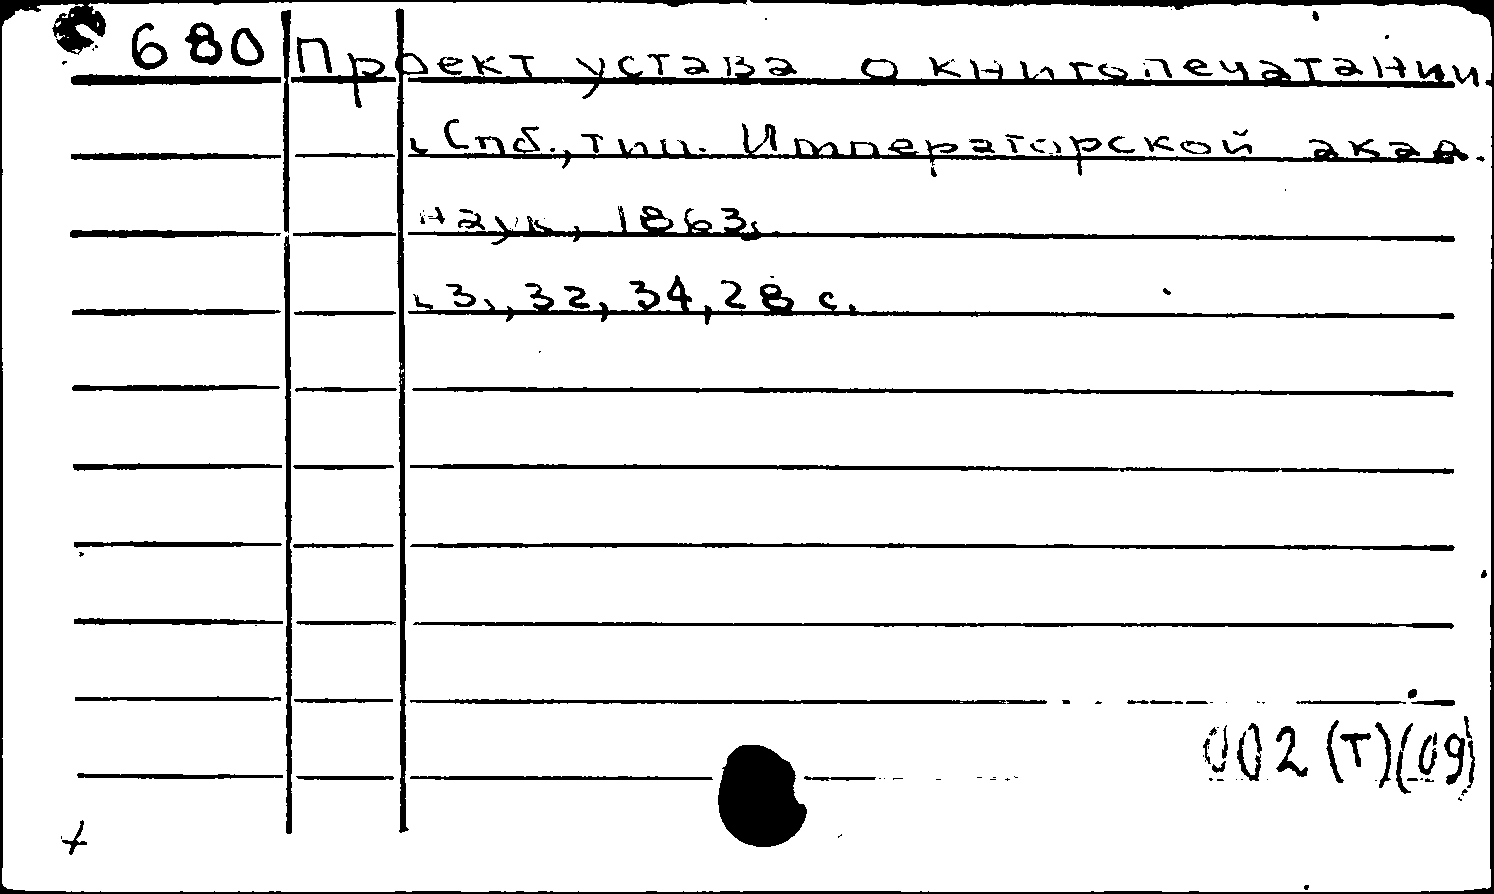 680 Проект устава о книгопечатании.
[Спб., тип. Императорской акад.
наук, 1863].
[3], 32, 34, 28 с.
002 (Т)(09)
+